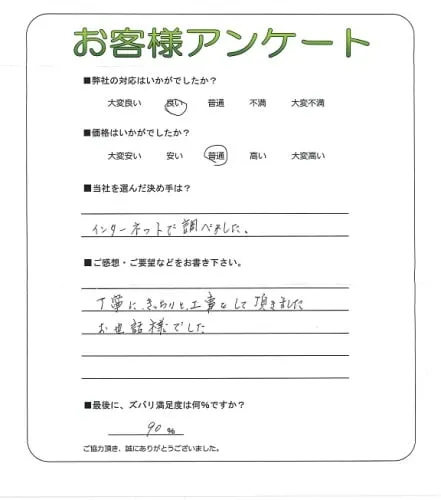 お客様アンケート
■弊社の対応はいかがでしたか?
大変良い 良い 普通 不満 大変不満
■価格はいかがでしたか?
大変安い 安い 普通 高い 大変高い
■当社を選んだ決め手は?
インターネットで調べました。
■ご感想・ご要望などをお書き下さい。
丁寧に、きっちりと、工事をして頂きました
お世話様でした
■最後に、ズバリ満足度は何%ですか?
90 %
ご協力頂き、誠にありがとうございました。